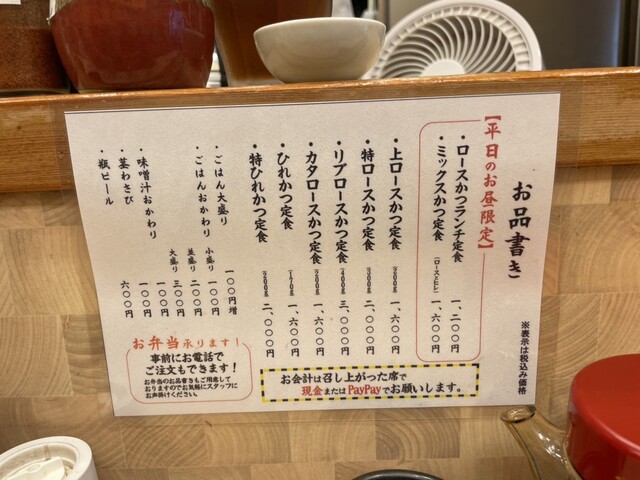 お品書き
※表示は税込み価格
【平日のお昼限定】
・ロースかつランチ定食 一、二〇〇円
・ミックスかつ定食 (ロースとヒレ) 一、六〇〇円
・上ロースかつ定食 (約200g) 一、六〇〇円
・特ロースかつ定食 (約300g) 二、〇〇〇円
・リブロースかつ定食 (約400g) 三、〇〇〇円
・カタロースかつ定食 (約200g) 一、六〇〇円
・ひれかつ定食 一、六〇〇円
・特ひれかつ定食 二、〇〇〇円
・ごはん大盛り 一〇〇円増
・ごはんおかわり 小盛り 一〇〇円
並盛り 二〇〇円
大盛り 三〇〇円
・味噌汁おかわり 一〇〇円
・茎わさび 一〇〇円
・瓶ビール 六〇〇円
お弁当承ります!
事前にお電話で
ご注文もできます!
お弁当のお品書きもご用意して
おりますのでお気軽にスタッフに
お声掛けください。
お会計は召し上がった席で
現金またはPayPayでお願いします。